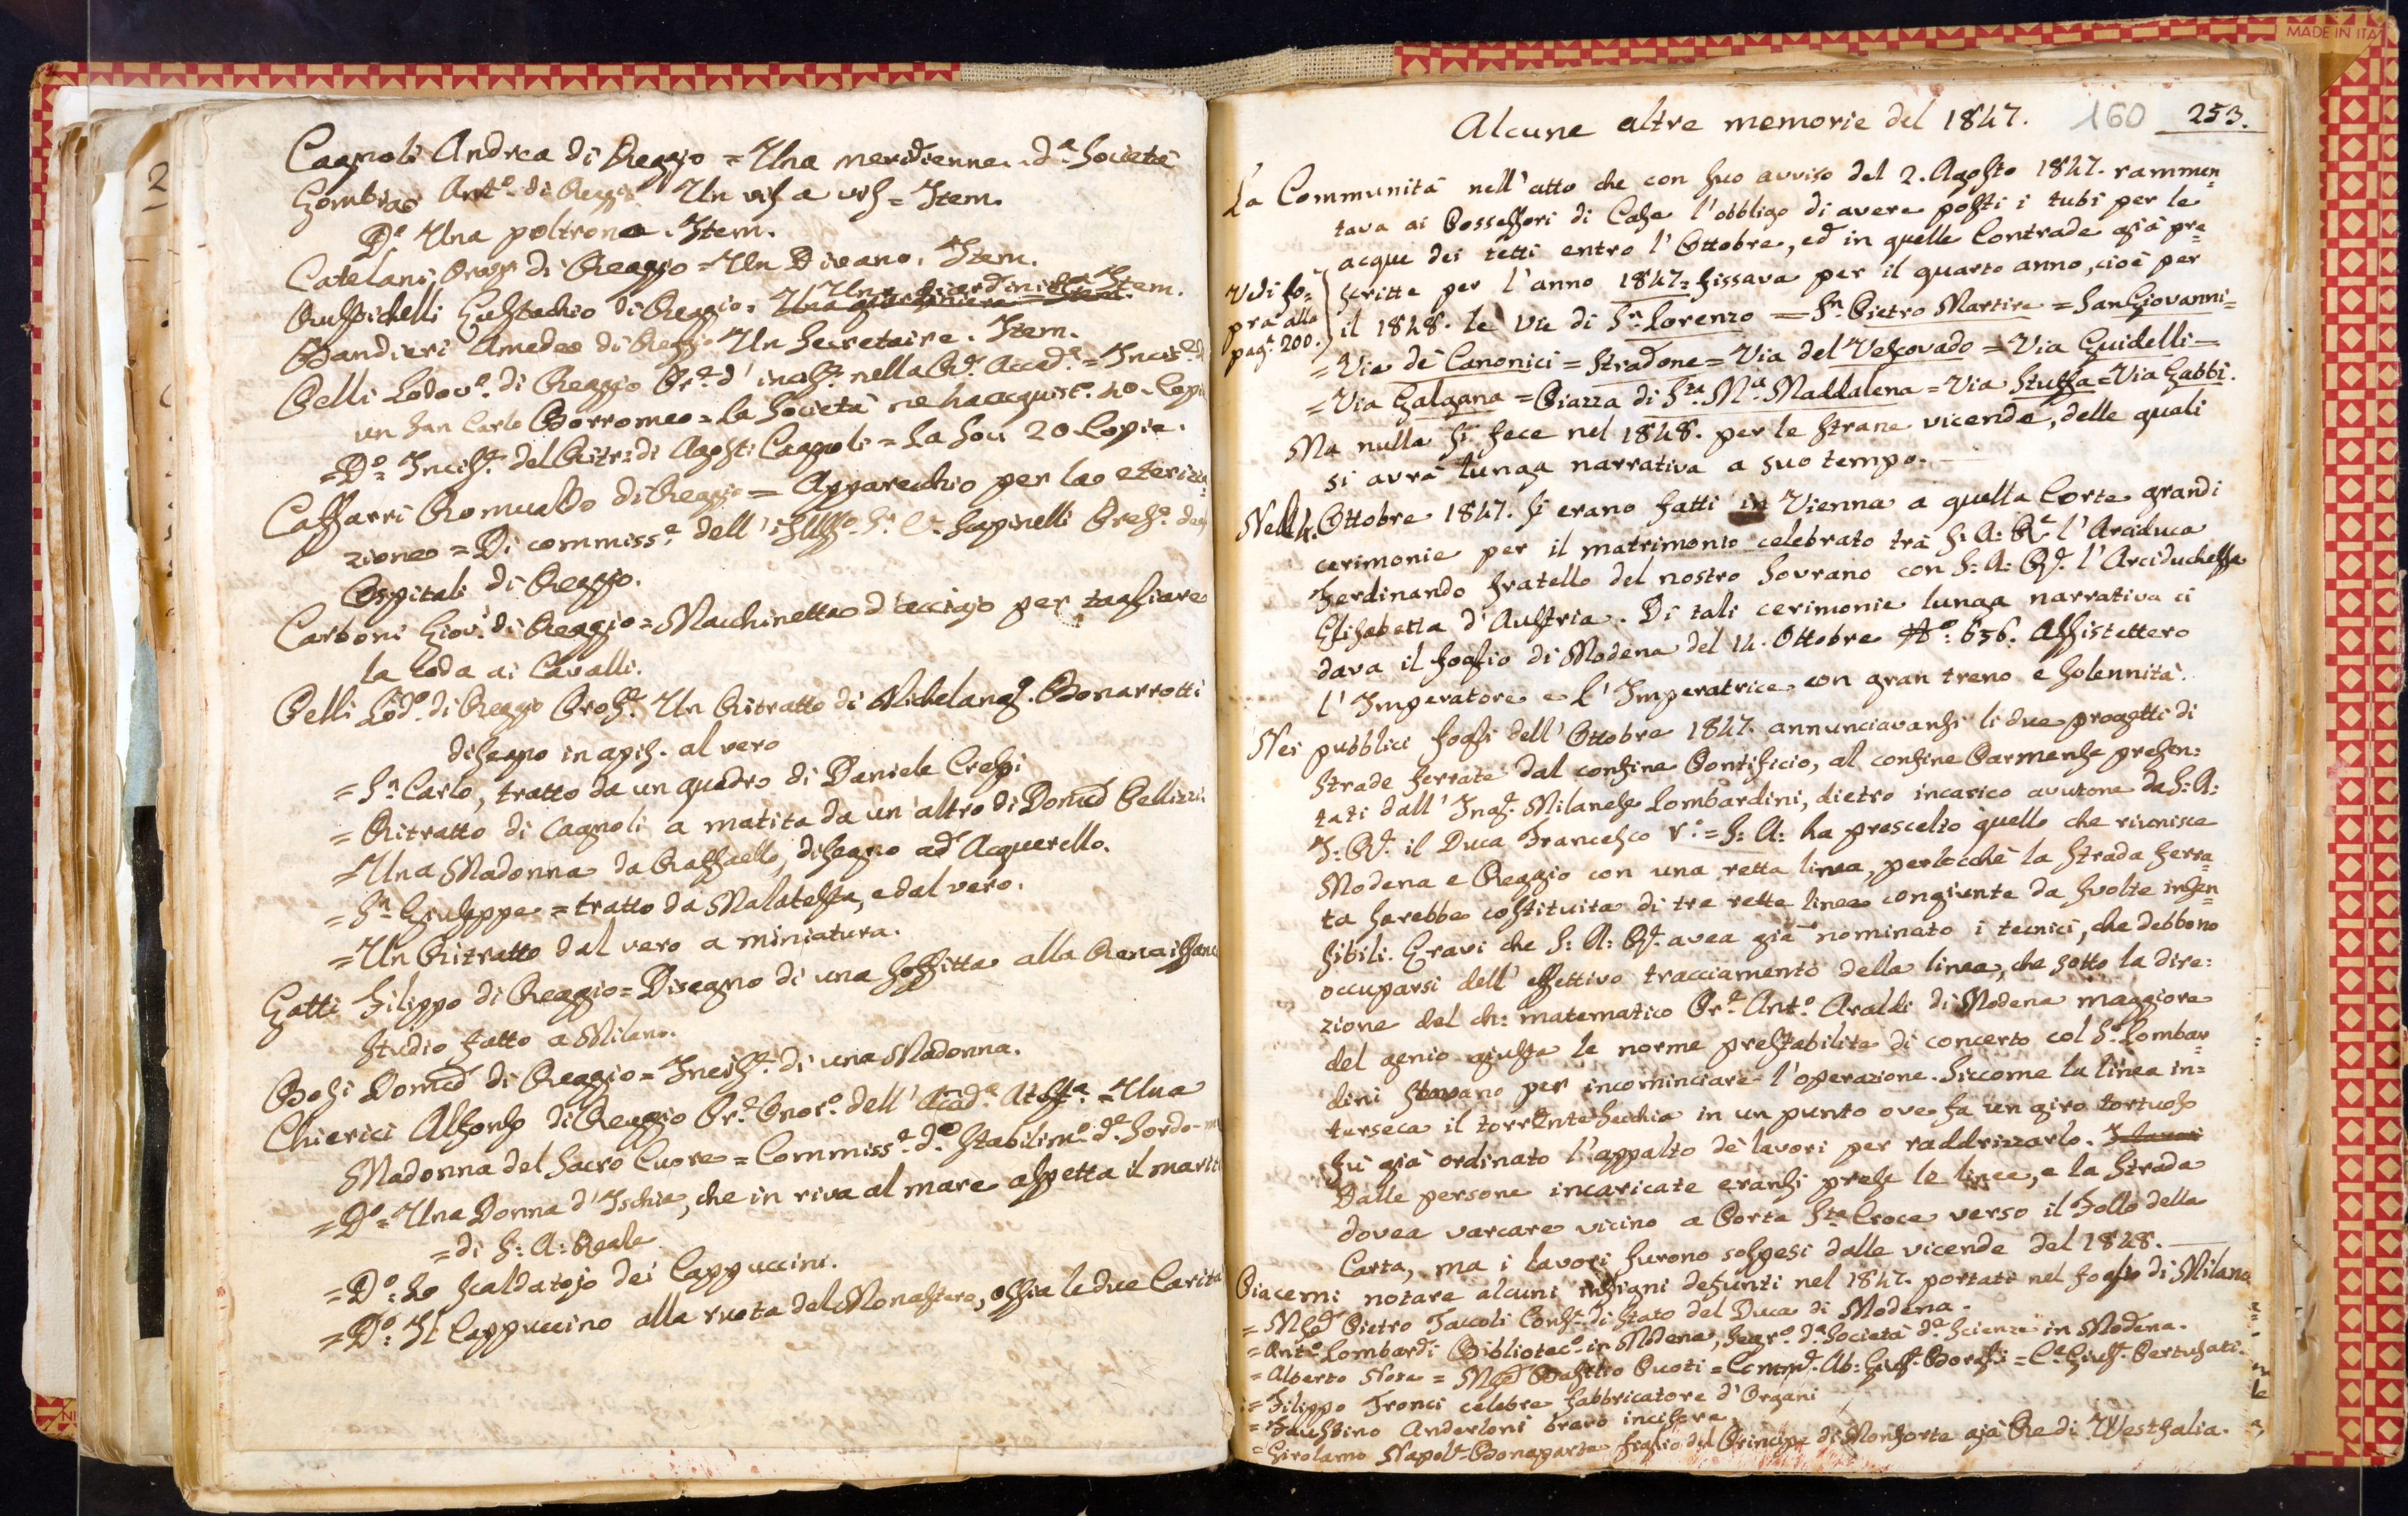 Cagnoli Andrea di Reggio = Una meridienne. d.ª Società
Ant.º di Reggio Un vis a vis = Item.
D.º Una poltrona. Item.
Catelani di Reggio = Un Divano. Item.
Una giardiniera Item.
Ruspidelli Eustachio di Reggio = Una giardiniera = Item.
Bandieri Amedeo di Reggio Un Secretaire. Item.
Belli Lodov.º di Reggio Pr.e d'incis.e nella R.e Accad.ª = Incis.e d
un San Carlo Borromeo = La Società ne ha acquist.º 40. Copi
= D.º = Incis.e del Ritr: di Agosti Cagnoli = La Soci 20 Copie.
Caffarri Romualdo di Reggio = Apparecchio per la eterizza=
zione = Di commiss.e dell' Sapinelli Pres.e deg
Ospitali di Reggio.
Carboni Giov: di Reggio = Macchinetta d'acciajo per tagliare
la coda ai Cavalli.
Belli Lod.º di Reggio Prof.e Un Ritratto di Michelang.º Bonarrotti
disegno in apis. al vero
= S.n Carlo, tratto da un quadro di Daniele Crespi
= Ritratto di Cagnoli a matita da un altro di Dom.co Pellizzi
= Una Madonna da Raffaello, disegno ad Acquerello.
= S.n Giuseppe = tratto da Malatesta, e dal vero.
= Un Ritratto dal vero a miniatura.
Gatti Filippo di Reggio = Disegno di una soffitta alla Renaissanc
studio fatto a Milano.
Bosi Dom.co di Reggio = Incis.e di una Madonna.
Chierici Alfonso di Reggio Pr.e Onor.º dell' Accad.ª Atest.ª = Una
Madonna del Sacro Cuore = Commiss.e d.º Stabilim.º d.e Sordo-m
= D.º = Una Donna d'Ischia, che in riva al mare aspetta il marit
= di S: A: Reale
= D.º: Lo Scaldatojo dei Cappuccini.
= D.º: Il Cappuccino alla ruota del Monastero, ossia le due Carità
Alcune altre memorie del 1847.
160
253.
La Communità nell'atto che con suo avviso del 2. Agosto 1847. rammen=
tava ai Possessori di Case l'obbligo di avere posti i tubi per le
acque dei tetti entro l'Ottobre, ed in quelle Contrade già pre=
scritte per l'anno 1847= fissava per il quarto anno, cioè per
Vedi so=
pra alla
pag.e 200.
il 1848. le Vie di S.n Lorenzo = S.n Pietro Martire = San Giovanni=
= Via de' Canonici = Stradone = Via del Vescovado = Via Guidelli =
= Via Galgana = Piazza di S.ta M.ª Maddalena = Via Stuffa = Via Gabbi.
Ma nulla si fece nel 1848. per le strane vicende, delle quali
si avrà lunga narrativa a suo tempo.
Nelli 4. Ottobre 1847. si erano fatti in Vienna a quella Corte grandi
cerimonie per il matrimonio celebrato trà S: A: R.e l'Arciduca
Ferdinando fratello del nostro Sovrano con S: A: R.e l'Arciduchessa
Elisabetta d'Austria. Di tali cerimonie lunga narrativa ci
dava il foglio di Modena del 14. Ottobre N.º: 656. Assistettero
l'Imperatore e l'Imperatrice con gran treno e solennità.
Nei pubblici fogli dell'Ottobre 1847. annunciavansi li due progetti di
Strade ferrate dal confine Pontificio, al confine Parmense presen=
tati dall'Ing.e Milanese Lombardini, dietro incarico avutone da S: A:
I: R.e il Duca Francesco V.º = S: A: ha prescelto quello che riunisce
Modena e Reggio con una retta linea, perlocchè la Strada ferra=
ta sarebbe costituita di tre rette linee congiunte da svolte insen=
sibili. Eravi che S: A: R.e avea già nominato i tecnici, che debbono
occuparsi dell'effettivo tracciamento della linea, che sotto la dire=
zione del ch: matematico Pr.e Ant.º Araldi di Modena maggiore
del genio giusta le norme prestabilite di concerto col S.r Lombar=
dini stavano per incominciare l'operazione. Siccome la linea in=
terseca il torrente Secchia in un punto ove fa un giro tortuoso
fù già ordinato l'appalto de' lavori per raddrizzarlo. I lavori
Dalle persone incaricate eransi prese le linee, e la Strada
dovea varcare vicino a Porta S.ta Croce verso il Follo della
Carta, ma i lavori furono sospesi dalle vicende del 1848.
Piacemi notare alcuni insigni defunti nel 1847. portati nel foglio di Milano
= M.se Pietro Taccoli Cons.e di Stato del Duca di Modena.
= Ant.º Lombardi Bibliotec.º in Modena, Segr.º d.ª Società d.e Scienze in Modena.
= Alberto Nota = M.se Basilio Puoti = Commd.e Ab: Gius.e Borghi = C.e Gius.e Pertusati.
= Filippo Tronci celebre fabbricatore d'Organi
= Faustino Anderloni bravo incisore.
= Girolamo Napol.e Bonaparte figlio del Principe di Monforte già Re di Westfalia.
MADE IN ITA